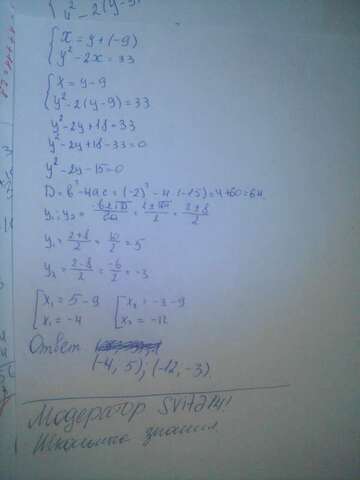 y² - 2(y-9)
{ x = y + (-9)
y² - 2x = 33
{ x = y - 9
y² - 2(y-9) = 33
y² - 2y + 18 = 33
y² - 2y + 18 - 33 = 0
y² - 2y - 15 = 0
D = b² - 4ac = (-2)² - 4·(-15) = 4+60 = 64
y₁; y₂ = (-b±√D)/2a = (2±√64)/2 = (2±8)/2
y₁ = (2+8)/2 = 10/2 = 5
y₂ = (2-8)/2 = -6/2 = -3
[ x₁ = 5 - 9 [ x₂ = -3 - 9
x₁ = -4 x₂ = -12
Ответ
(-4, 5); (-12, -3).
Модератор
Школьные знания